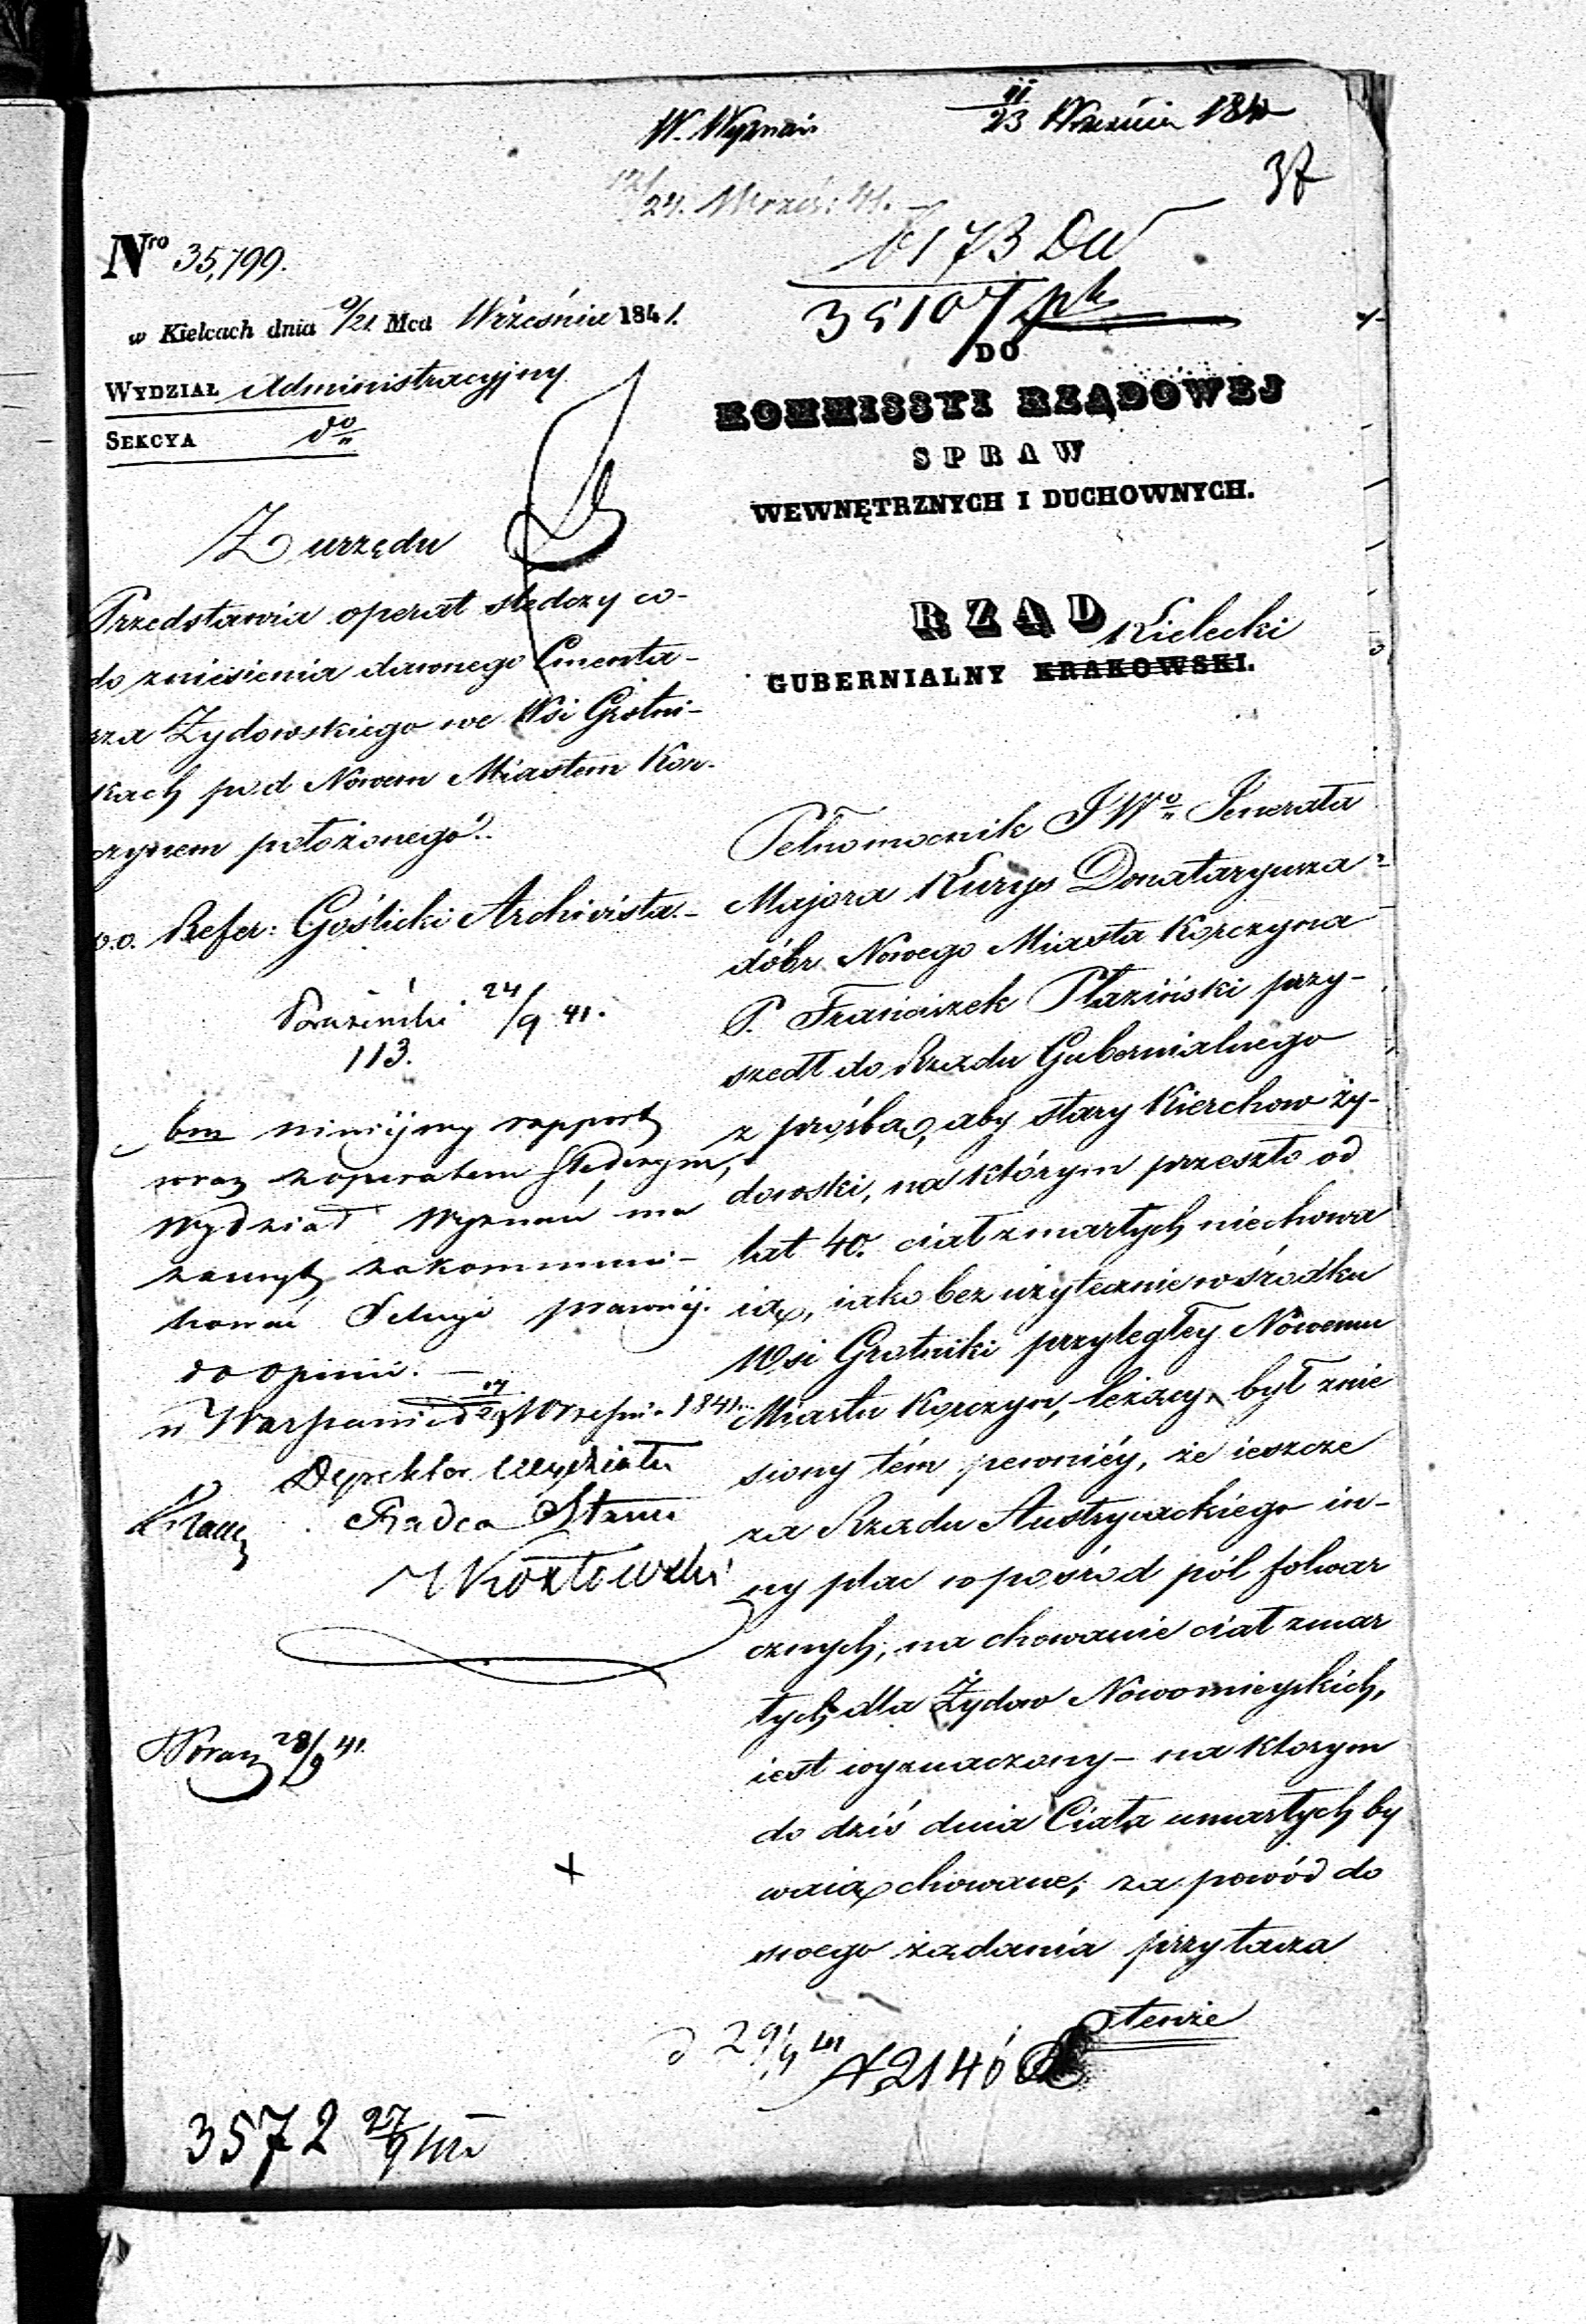 W. Wyznań
11/23 Września 184
37
12/24. Wrześ: 41.
6173 DW
35107
Nro 35,799.
w Kielcach dnia 9/21 Mca Września 1841.
WYDZIAŁ Administracyjny
SEKCYA do
Z urzędu
Przedstawia operat śledczy co-
do zniesienia dawnego Cmenta-
rza Żydowskiego we Wsi Grotni-
kach pod Nowem Miastem Kor-
czynem położonego.
p.o. Refer: Goślicki Archivista.
24/9 41.
113.
ninijszy rapport
wraz z operatem śledczym,
Wydział Wyznań ma
zaszczyt zakommuni-
kować Sekcyi prawnéj
do opinii. —
w Warszawie d Września 1841.
Dyrektor Wydziału
Radca Stanu
28/9 41.
3572 27/9
DO
KOMMISSYI RZĄDOWEJ
SPRAW
WEWNĘTRZNYCH I DUCHOWNYCH.
RZĄD
Kielecki
GUBERNIALNY KRAKOWSKI.
Pełnomocnik JWo Jenerała
Majora Kurys Donataryusza
dóbr Nowego Miasta Korczyna
P. Franciszek Płaziński przy-
szedł do Rządu Gubernialnego
z prośbą, aby stary Kierchow ży-
dowski, na którym przeszło od
lat 40. ciał zmarłych niechowa
ią, iako bez użytecznie w środku
Wsi Grotniki przyległey Nowemu
Miastu Korczyn, leżący, był znie
siony tém pewniéy, że ieszcze
za Rządu Austryackiego in-
ny plac w pośród pól folwar
cznych, na chowanie ciał zmar
łych dla Żydow Nowomieyskich,
iest wyznaczony – na ktorym
do dziś dnia Ciała umarłych by
waią chowane; za powód do
swego żądania przytacza
tenże
d 29/9 41
N 2140